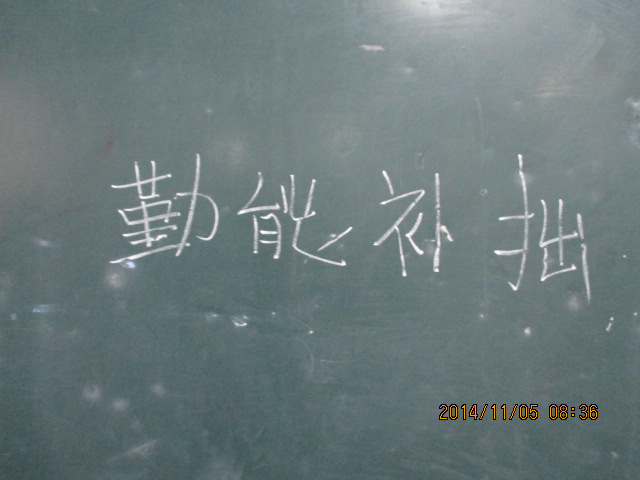 勤能补拙
2014/11/05 08:36